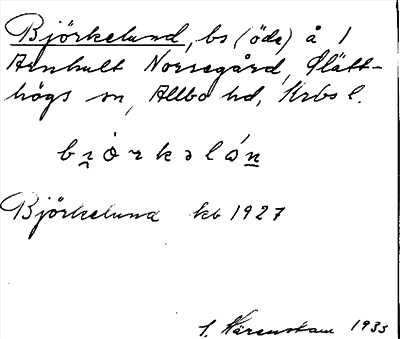 Björkelund, bs (öde) å 1
Arnhult Norregård, Slätt-
högs sn, Allbo hd, Krbs l.
björkəlón
Björkelund kb 1927
S. Kärenstam 1935